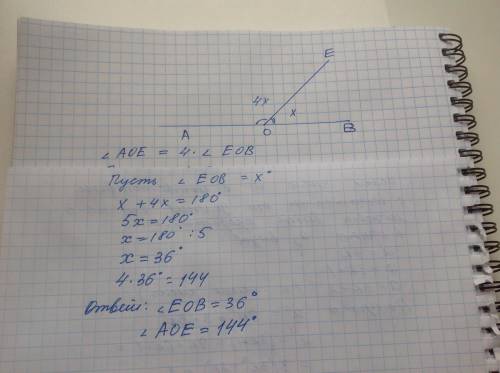 E
4x
x
A
O
B
∠ AOE = 4 · ∠ EOB
Пусть ∠ EOB = x°
x + 4x = 180°
5x = 180°
x = 180° : 5
x = 36°
4 · 36° = 144
Ответ: ∠ EOB = 36°
∠ AOE = 144°